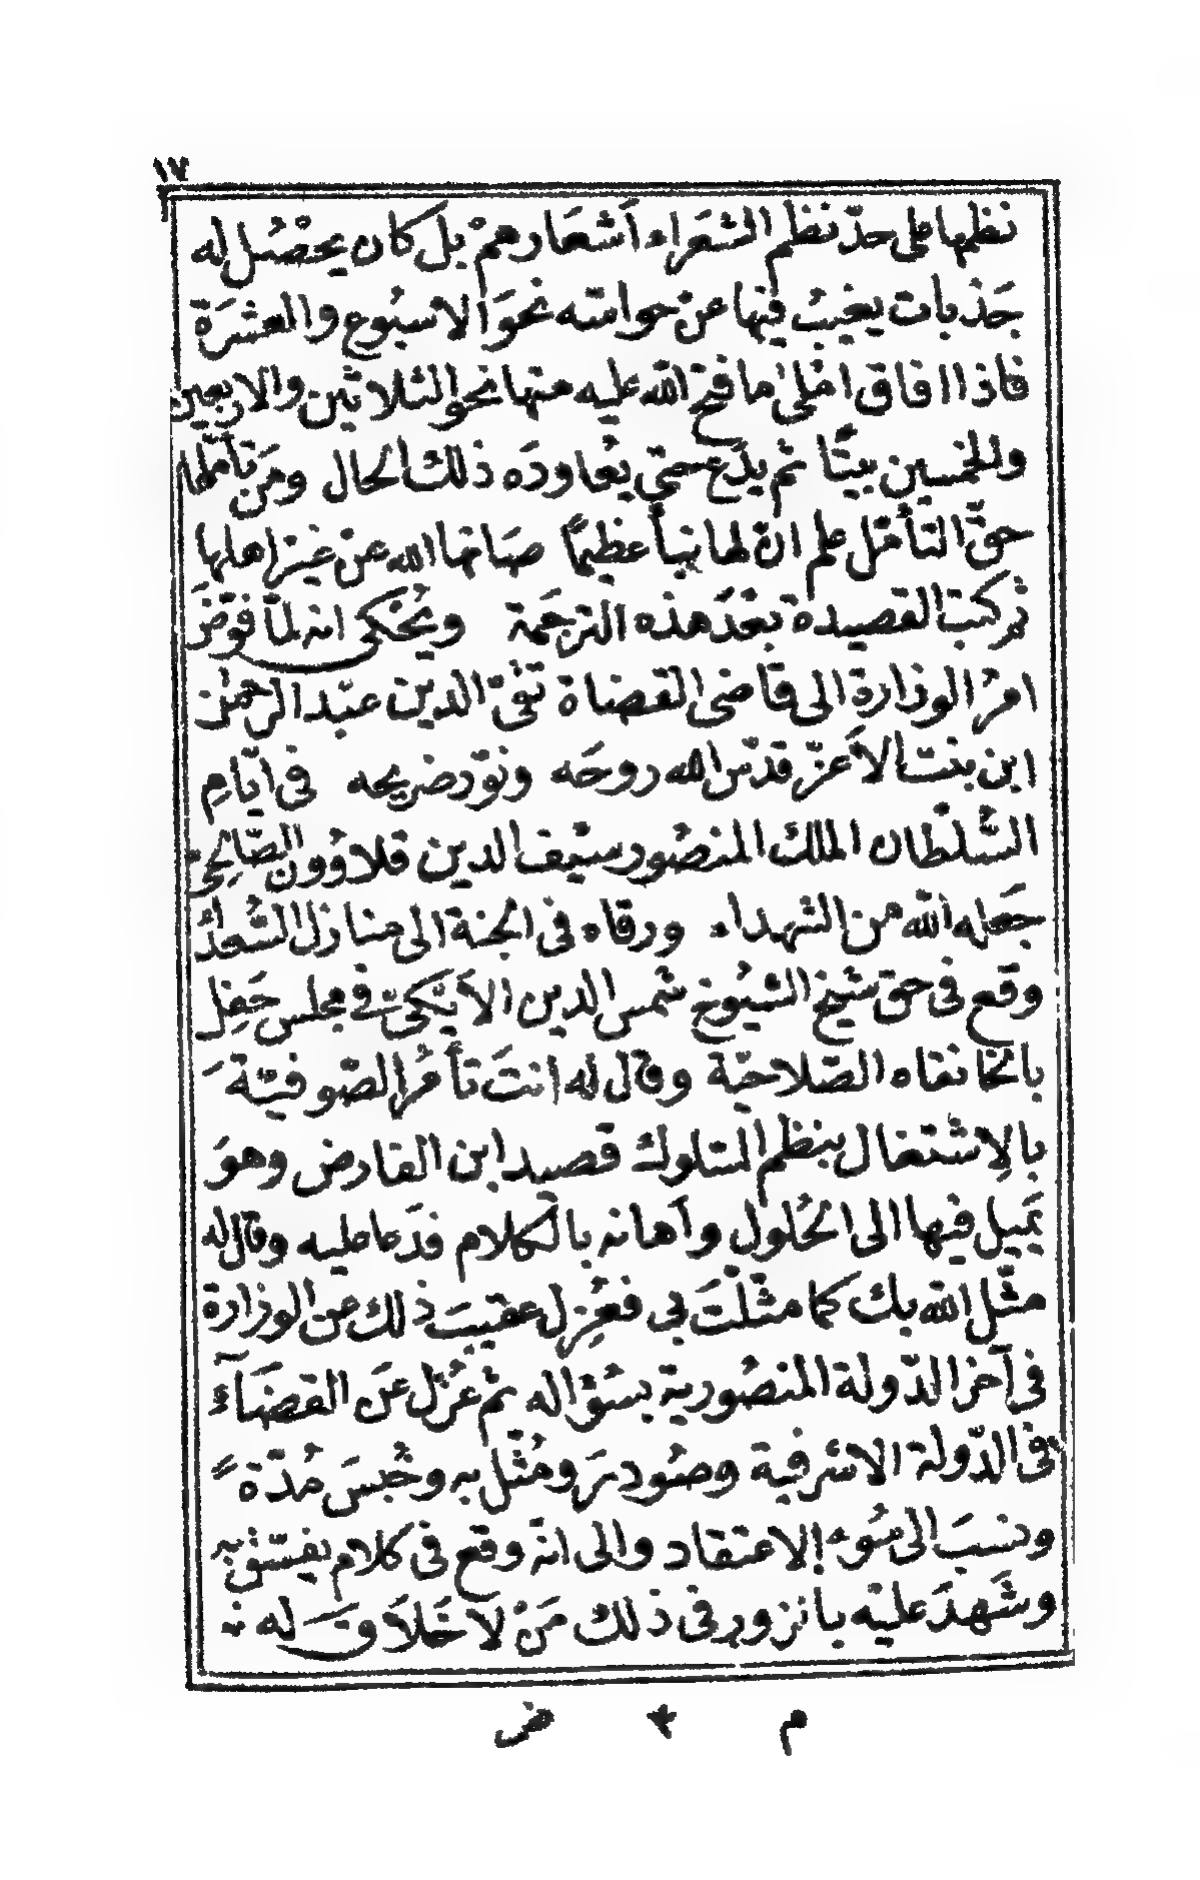 ١٧
نظمها على حدّ نظم الشعَراء أشعَارهمْ بل كان يحصُل له
جَذبات يغيبُ فيها عن حواسّه نحوَ الاسبُوع والعشرَة
فاذا افاق امْلىٰ ما فتح الله عليه منها نحو الثلاثين والاربعين
والخمسين بيتًا ثم يدَع حتى يعُاودَه ذلك الحال ومَن تأملها
حقّ التأمّل علم انّ لها نبأ عظيمًا صَانها الله عن غيرَ اهلها
ثم ركبت القصيدة بعْدَ هذه الترجَمة ويُحْكى انه لمّا فوّضَ
امرُ الوزارة الى قاضى القضاة تقىّ الدين عبْد الرحمٰن
ابن بنت الأعزّ قدّس الله روحَه ونوّر ضريحه فى ايّام
السّلطان الملك المنصُور سيْف الدين قلاوُون الصّالحىّ
جَعله الله من الشهداء ورقاه فى الجنة الى منازل السُّعدَاء
وقَع فى حق شيْخ الشيُوخ شمْس الدين الأيْكىّ فى مجلس حَفِل
بالخانقاه الصّلاحيّة وقال له انتَ تأمُر الصّوفيّةَ
بالاِشتغال بنظم السّلوك قصيد ابن الفارض وهوَ
يَميل فيها الى الحُلول وأهانه بالكلام فدَعا عليه وقال له
مثّل الله بك كما مثّلْتَ بى فعُزِل عقيبَ ذلك من الوزارة
فى آخر الدّولة المنصُورية بسُؤاله ثم عُزل عَن القضَآء
فى الدّولة الاشرفية وصُودرَ ومُثّل به وحُبسَ مُدّةً
ونسبَ الى سُوء الاعتقاد والى انّه وقع فى كلام يفسّق به
وشَهدَ عليْه بالزور فى ذلك مَنْ لَا خَلَاقَ له
م ٣ ض